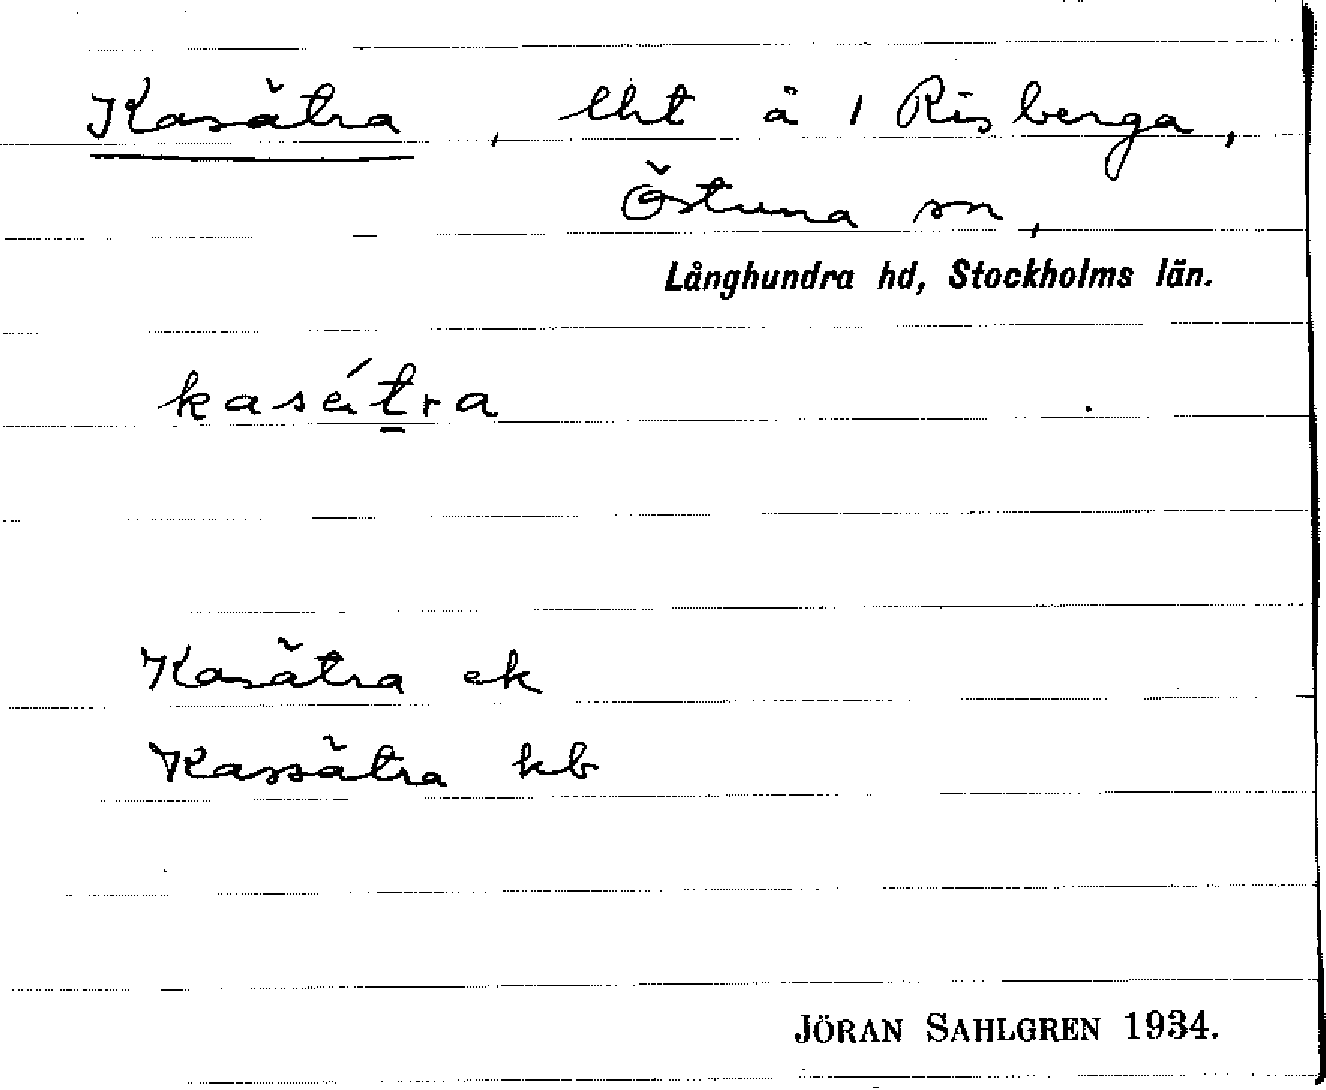 Kasätra, lht å 1 Risberga,
Östuna sn,
Långhundra hd, Stockholms län.
kasä́t̲ra
Kasätra ek
Kassätra kb
JÖRAN SAHLGREN 1934.